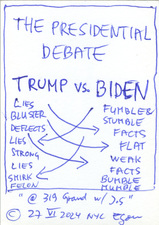 THE PRESIDENTIAL
DEBATE
TRUMP vs. BIDEN
LIES
BLUSTER
DEFLECTS
LIES
STRONG
LIES
SHIRK
FELON
FUMBLE &
STUMBLE
FACTS
FLAT
WEAK
FACTS
BUMBLE
MUMBLE
"@ 319 Grand w/ J.S"
© 27 VI 2024 NYC